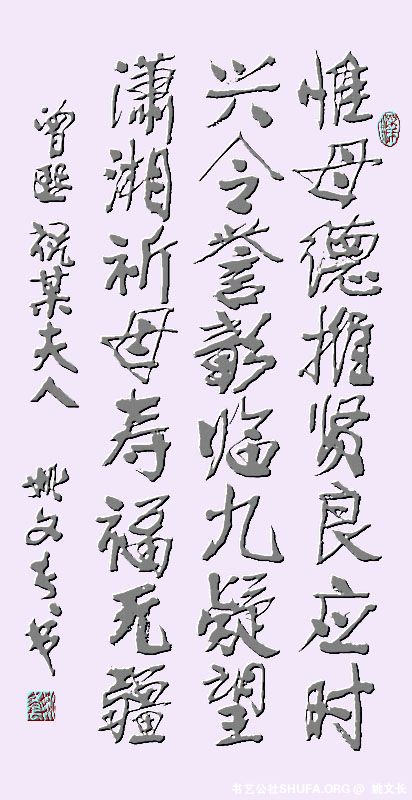 惟母德推贤良应时
兴令誉彰临九疑望
潇湘祈母寿福无疆
曾熙 祝某夫人
姚文长书
书艺公社SHUFA.ORG @ 姚文长